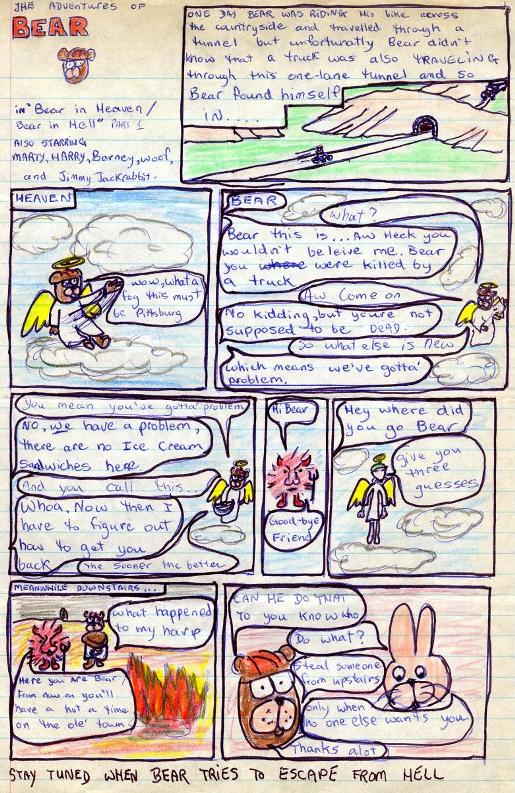 THE ADVENTURES OF
BEAR
in "Bear in Heaven/
Bear in Hell" PART 1
ALSO STARRING
MARTY, HARRY, Barney, woof,
and Jimmy Jackrabbit.
ONE DAY BEAR WAS RIDING His bike across
the countryside and travelled through a
tunnel but unforturatly Bear didn't
know that a truck was also TRAVELING
through this one-lane tunnel and so
Bear found himself
IN....
HEAVEN
wow, what a
fog this must
be Pittsburg
BEAR
What?
Bear this is... Aw Heck you
wouldn't be leive me. Bear
you where were killed by
a truck
Aw come on
No kidding, but you're not
supposed to be DEAD.
So what else is new
which means we've gotta'
problem.
You mean you've gotta problem
NO, we have a problem,
there are no Ice Cream
sandwiches here.
And you call this...
Whoa. Now then I
have to figure out
how to get you
back
the sooner the better
Hi Bear
Good-bye
Friend
Hey where did
you go Bear
Give you
three
guesses
MEANWHILE DOWNSTAIRS...
what happened
to my harp
Here you are Bear/
From now on you'll
have a hot a time
on 'the ole' town.
CAN HE DO THAT
TO you KNOW WHO
Do what?
Steal someone
from upstairs
only when
no one else wants you
Thanks alot
STAY TUNED WHEN BEAR TRIES TO ESCAPE FROM HELL